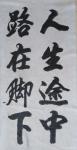 人生途中
路在脚下